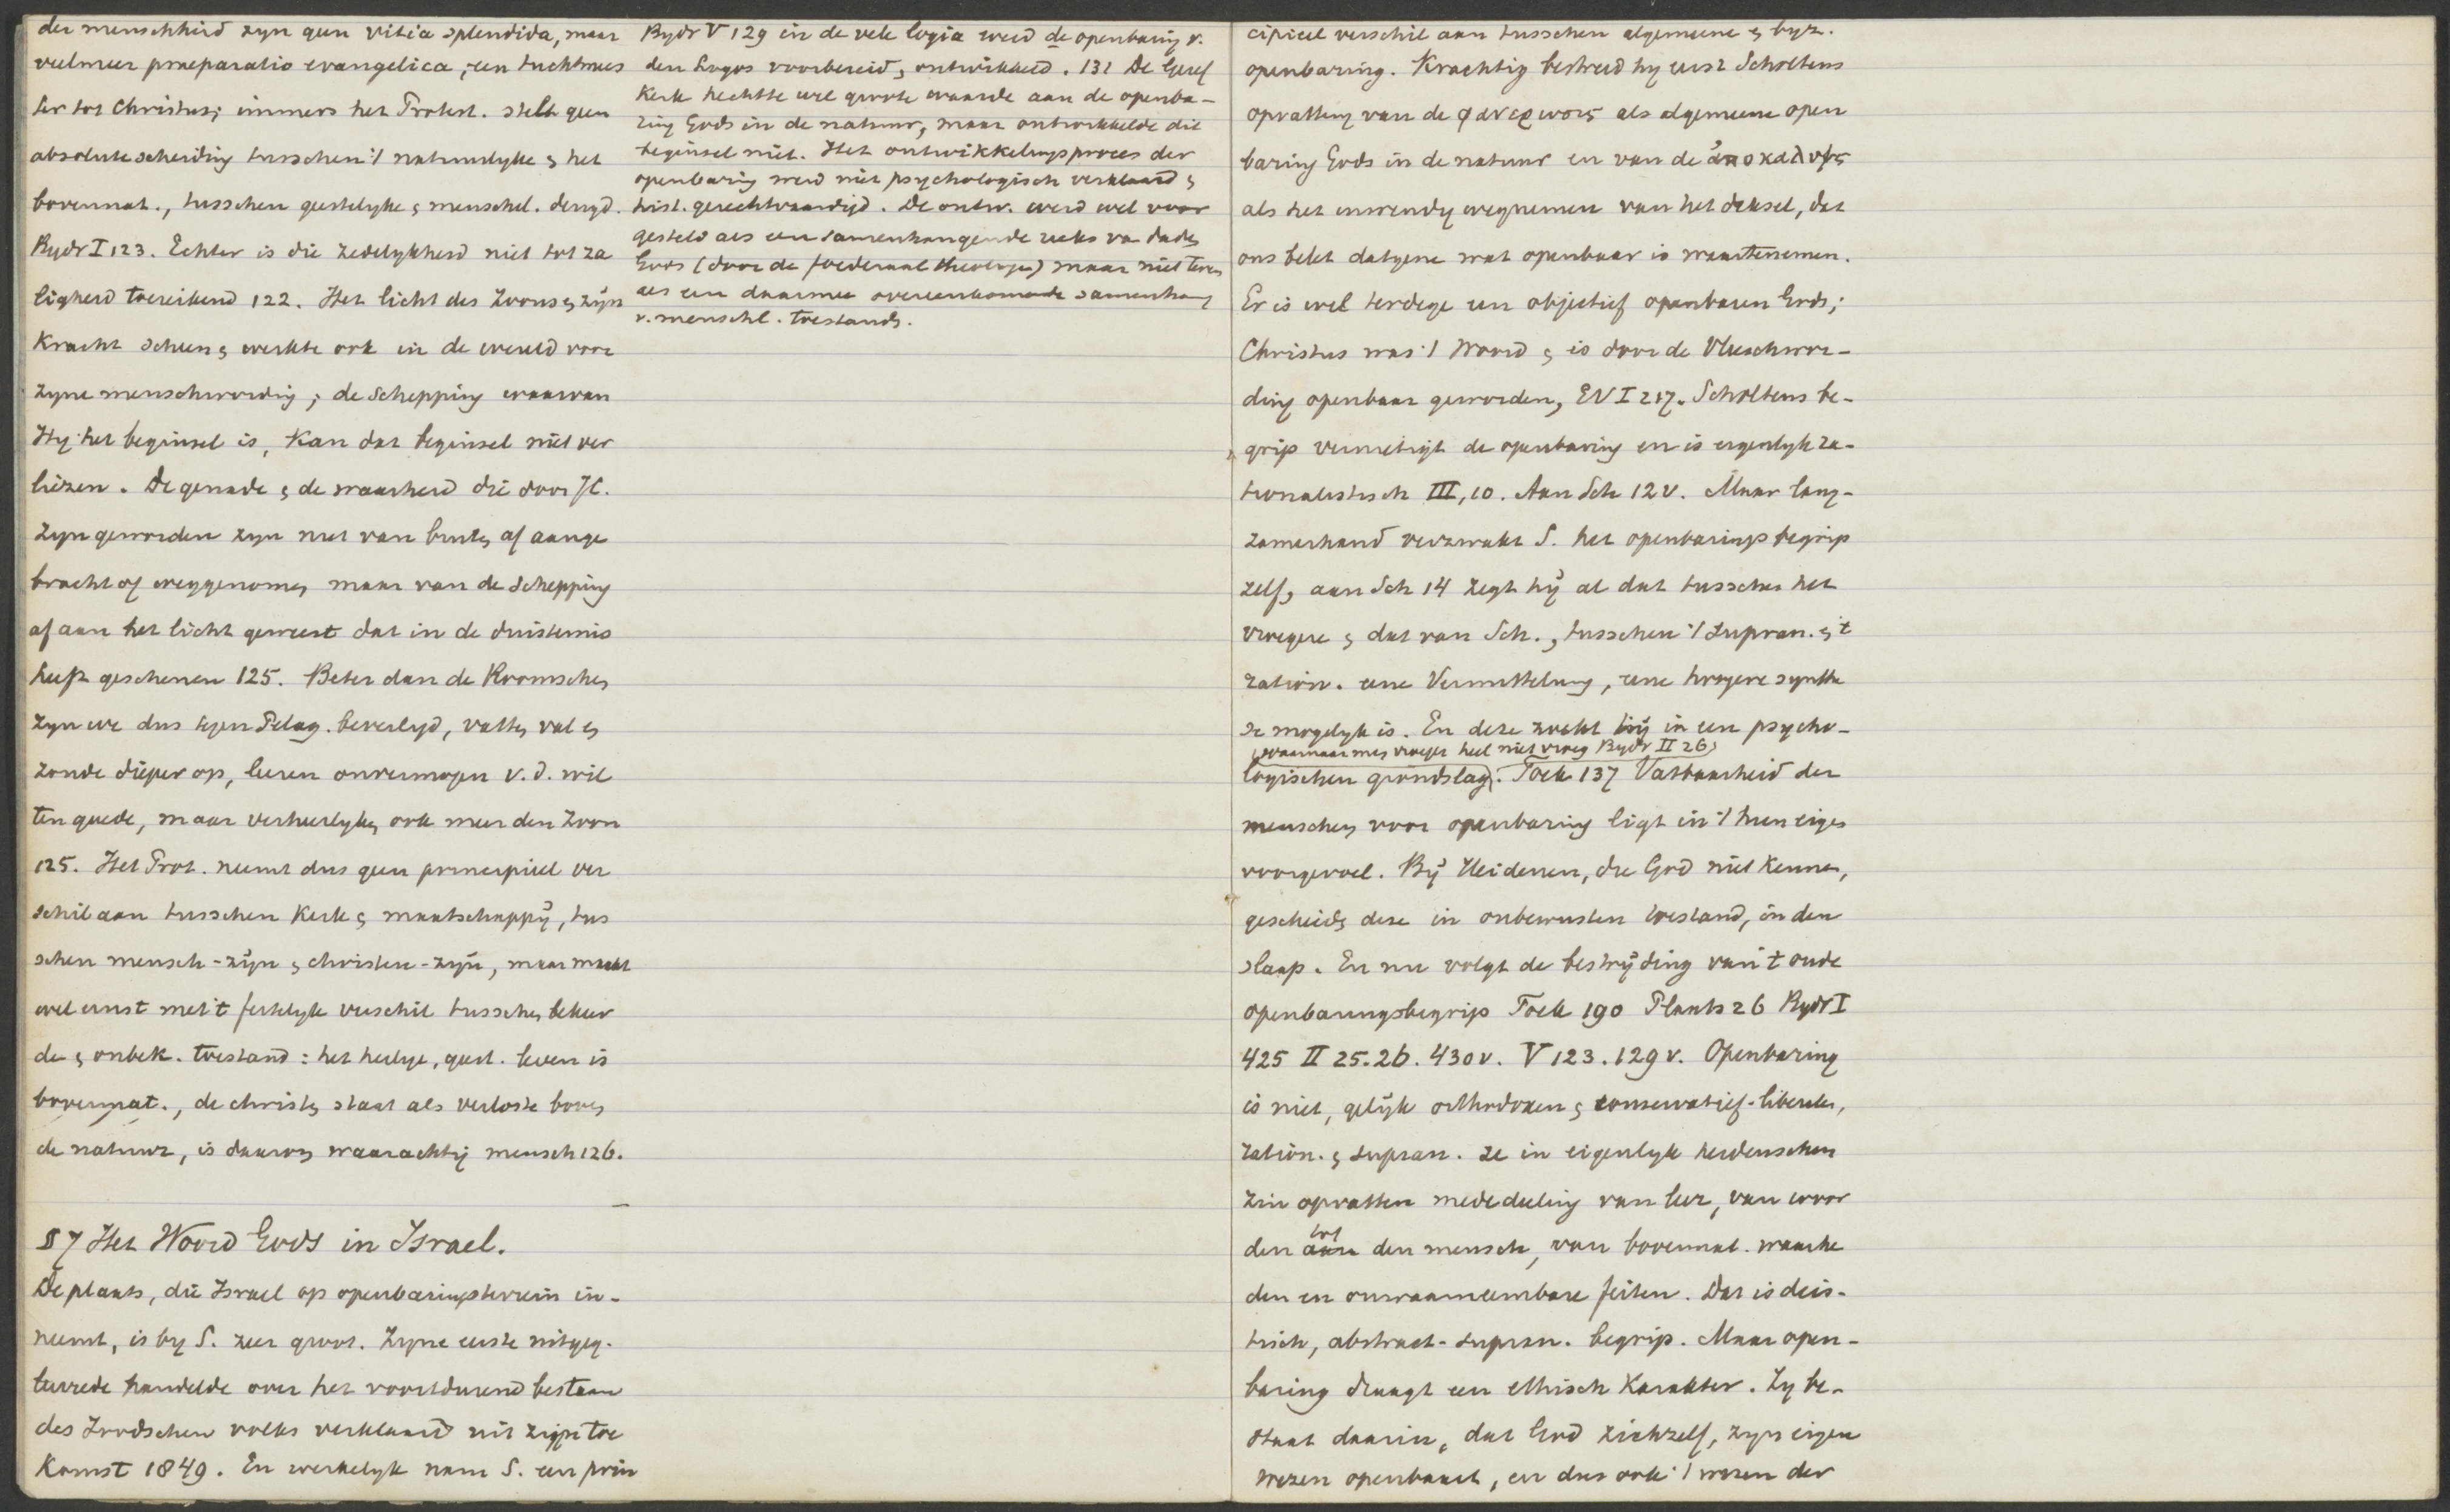 der menschheid zyn geen vitia splendida, maar
veelmeer praeparatio evangelica, een tuchtmees
ter tot Christus; immers het Protest. stelt geen
absolute scheiding tusschen 't natuurlyke & het
bovennat., tusschen geestelyke & menschel. deugd.
Bydr I 123. Echter is die zedelykheid niet tot za
ligheid toereikend 122. Het licht des Zoons & zyn
kracht scheen & werkte ook in de wereld voor
zyne menschwording; de schepping waarvan
Hy het beginsel is, kan dat beginsel niet ver
liezen. De genade & de waarheid die door JC.
zyn geworden zyn niet van buiten af aange
bracht of weggenomen maar van de schepping
af aan het licht geweest dat in de duisternis
heeft geschenen 125. Beter dan de Roomschen
zyn we dus tegen Pelag. beveiligd, vatten val en
zonde dieper op, leeren onvermogen v.d. wil
ten goede, maar verheerlyken ook meer den Zoon
125. Het Prot. neemt dus geen principieel ver
schil aan tusschen kerk & maatschappÿ, tus
schen mensch-zÿn & christen-zÿn, maar maakt
wel ernst met 't feitelyk verschil tusschen bekeer
de & onbek. toestand: het heilige, geest. leven is
bovennat., de christen staat als verloste boven
de natuur, is daarom waarachtig mensch 126.
§ 7 Het Woord Gods in Israel.
De plaats, die Israel op openbaringsterrein in-
neemt, is by S. zeer groot. Zyne eerste uitgeg.
leerrede handelde over het voortdurend bestaan
des Joodschen volks verklaard uit zijn toe
komst 1849. En werkelyk nam S. een prin
Bydr V 129 in de vele logia werd de openbaring v.
den Logos voorbereid, ontwikkeld. 131 De Geref
Kerk hechtte wel groote waarde aan de openba-
ring Gods in de natuur, maar ontwikkelde dit
beginsel niet. Het ontwikkelingsproces der
openbaring werd niet psychologisch verklaard &
hist. gerechtvaardigd. De ontw. werd wel voor
gesteld als een samenhangende reeks van daden
Gods (door de foederaal theologie) maar niet tevens
als een daarmee overeenkomende samenhang
v. menschl. toestand.
cipieel verschil aan tusschen algemeene & byz.
openbaring. Krachtig bestreed hy eerst Scholtens
opvatting van de φανερωσις als algemeene open
baring Gods in de natuur en van de ἀποκαλυψις
als het inwendig wegnemen van het deksel, dat
ons belet datgene wat openbaar is waartenemen.
Er is wel terdege een objectief openbaren Gods;
Christus was 't Woord & is door de Vleeschwor-
ding openbaar geworden, EV I 217. Scholtens be-
grip vernietigt de openbaring en is eigenlyk ra-
tionalistisch III, 10. Aan Sch 12 v. Maar lang-
zamerhand verzwakt S. het openbaringsbegrip
zelf, aan Sch 14 zegt hÿ al dat tusschen het
vroegere & dat van Sch., tusschen 't supran. & 't
ration. eene Vermittelung, eene hoogere synthe
se mogelyk is. En deze zoekt hÿ in een psycho-
(waarnaar men vroeger heel niet vroeg Bydr II 26)
logischen grondslag. Toek 137 Vatbaarheid der
menschen voor openbaring ligt in 't hun eigen
voorgevoel. Bÿ Heidenen, die God niet kennen,
geschiedt deze in onbewusten toestand, in den
slaap. En nu volgt de bestrÿding van 't oude
openbaringsbegrip Toek 190 Plaats 26 Bydr I
425 II 25.26. 430 v. V 123. 129 v. Openbaring
is niet, gelÿk orthodoxen & conservatief-liberalen,
ration. & supran. ze in eigenlyk heidenschen
zin opvatten mededeeling van leer, van woor
den tot den mensch, van bovennat. waarhe
den en onwaarneembare feiten. Dat is deïs-
tisch, abstract-supran. begrip. Maar open-
baring draagt een ethisch karakter. Zy be-
staat daarin, dat God zichzelf, zyn eigen
wezen openbaart, en dus ook 't wezen der